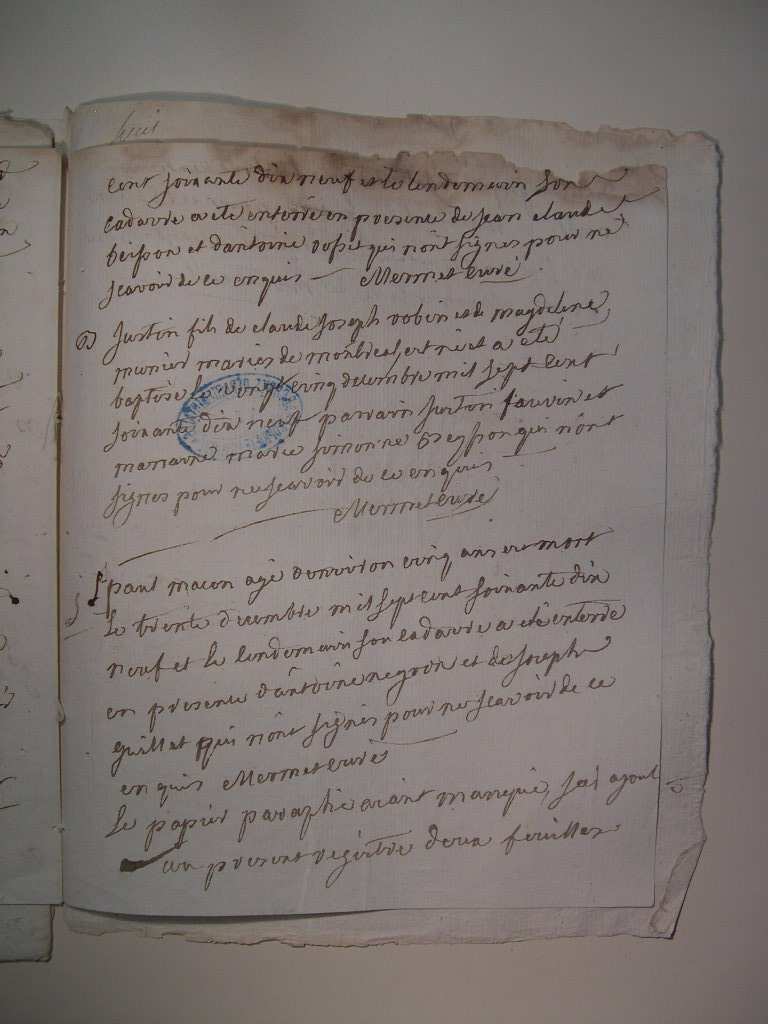 huit
cent soixante dix neuf et le lendemain son
cadavre a été enterré en presente de jean claude
et d'antoine qui nônt signés pour ne
scavoir de ce enquis Mermet curé
B justin fils de claude joseph robin et de magdeleine
munier mariés de montreal, est né et a été
baptisé le vingt cinq decembre mil sept cent
soixante dix neuf parrain justin fauvin et
marraine marie simonne qui nônt
signés pour ne scavoir de ce enquis
Mermet curé
S paul macon agé d'environ cinq ans est mort
le trente decembre mil sept cent soixante dix
neuf et le lendemain son cadavre a été enterré
en presente d'ântoine negron et de joseph
guillet qui nônt signés pour ne scavoir de ce
enquis Mermet curé
le papier paraphé aiant manqué, j'ai ajouté
au present regitre deux feuilles